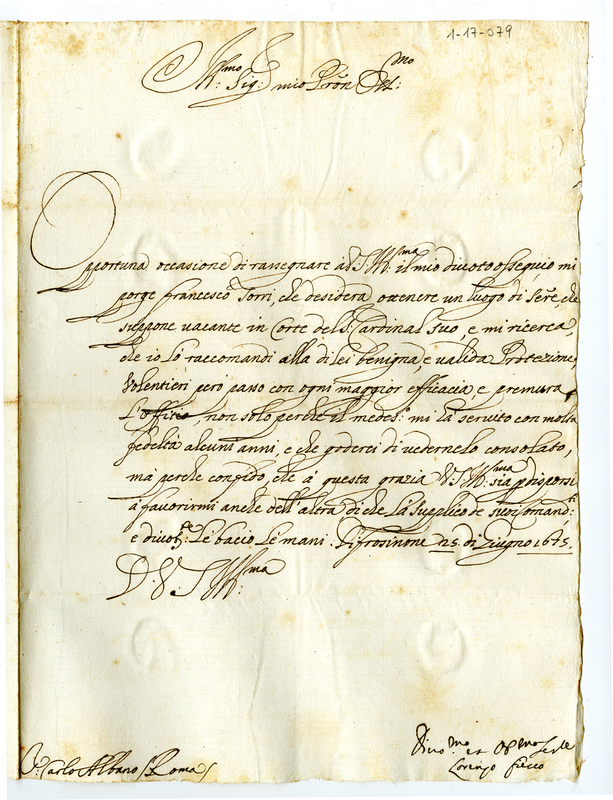 1-17-079
Ill:mo Sig: mio Pron Col:mo
Opportuna occasione di rassegnare à V.S Ill:ma il mio divoto ossequio mi
porge Francesco Torri, che desidera ottenere un luogo di , che
suppone vacante in Corte del S. Cardinal suo, e mi ricerca,
che io lo raccomandi alla di lei benigna, e valida Protezione,
Volentieri però passo con ogni maggior efficacia, e premura
l'offitio, non solo perche il medes:o mi hà servito con molta
fedeltà alcuni anni, e che goderei di vedernelo consolato,
mà perche confido, che à questa grazia V.S Ill:ma sia p disporsi
à favorirmi anche dell'altra di che la supplico de suoi comand:ti
e divot:te le bacio le mani. Di frosinone 25. di Giugno 1675.
D. V. S Ill:ma
Divo:mo et Obl:mo
Lorenzo fiecco
S: Carlo Albano / Roma /